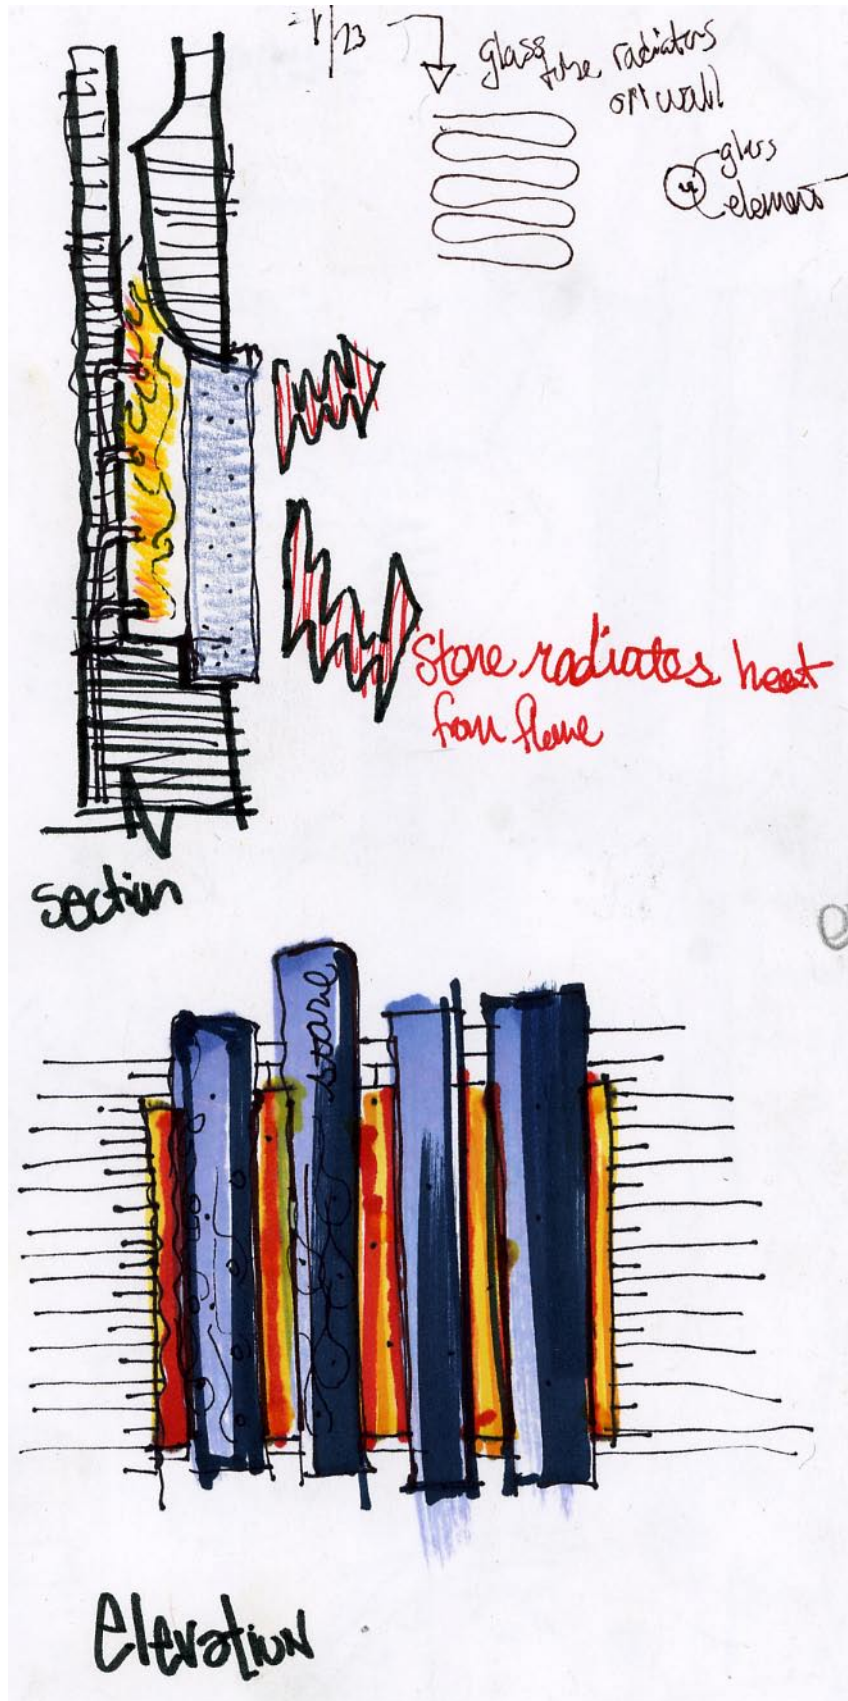 glass tube radiators
on wall
glass
element
Stone radiates heat
from flame
section
stone
elevation